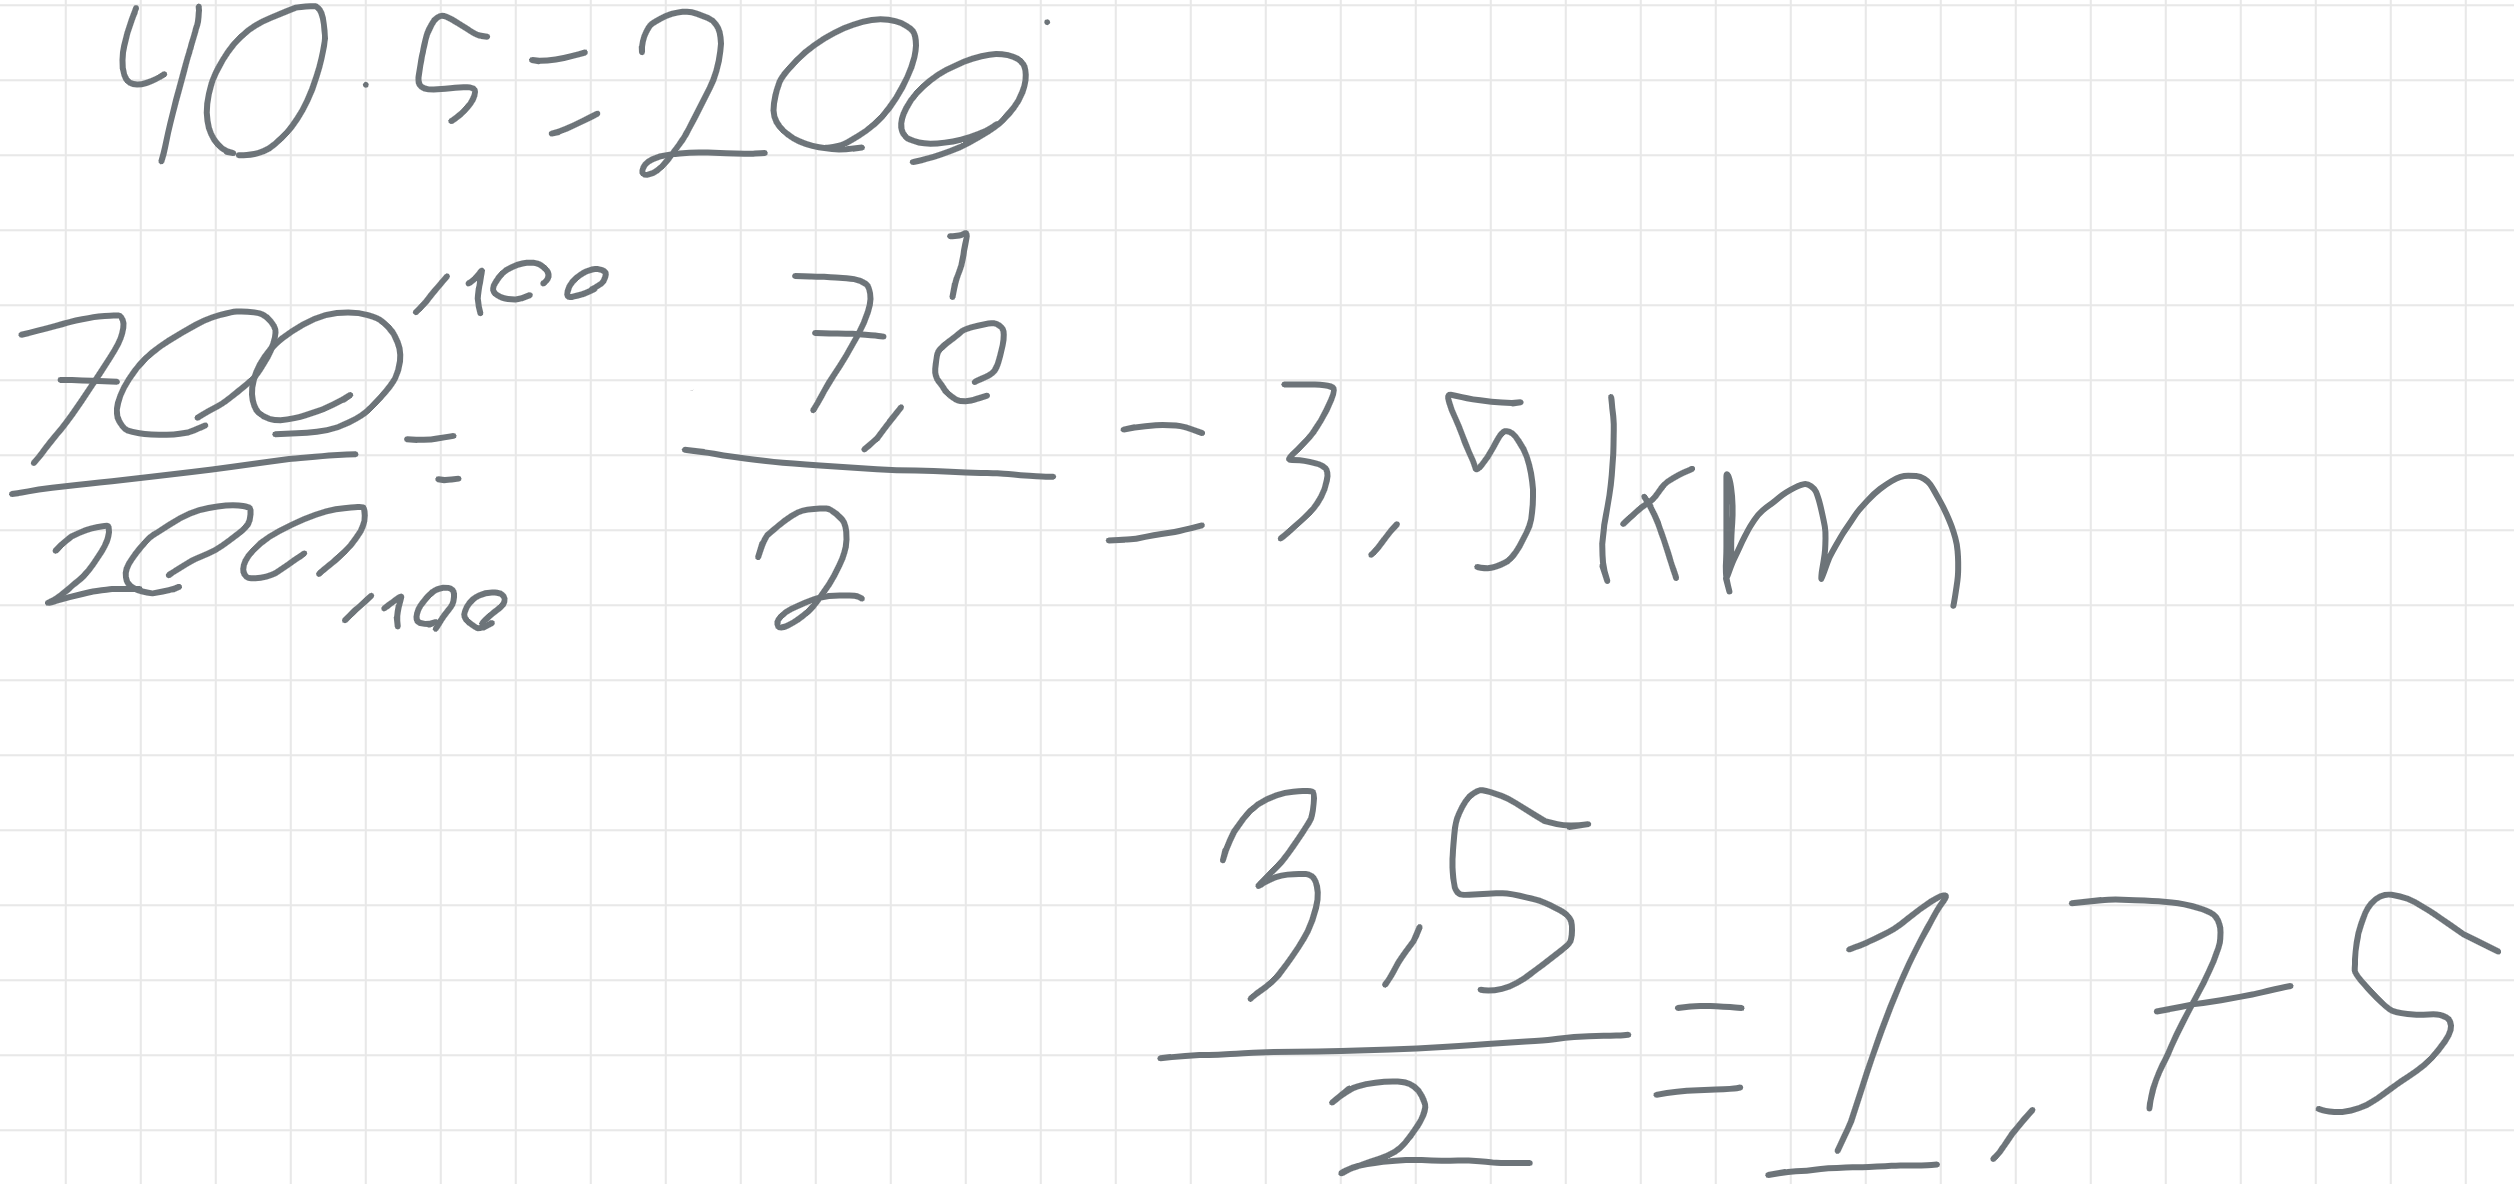 40 · 5 = 200
700,00 / 200,00 = 7,0 / 2 = 3,5 km
3,5 / 2 = 1,75